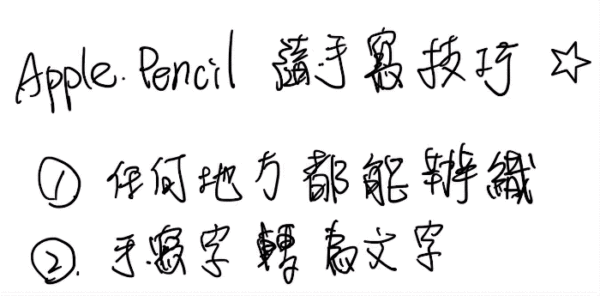 Apple Pencil 隨手寫技巧 ☆
① 任何地方都能辨織
② 手寫字轉為文字